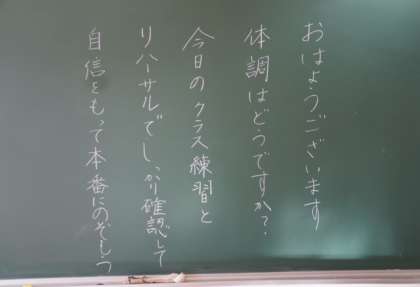 おはようございます
体調はどうですか?
今日のクラス練習と
リハーサルでしっかり確認して
自信をもって本番にのぞもう